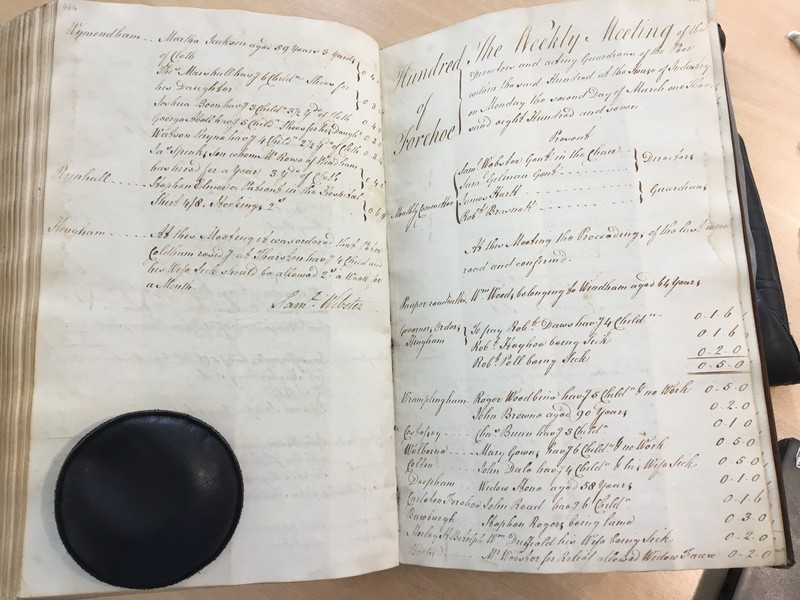 464
Wymondham .. Martha Jackson aged 59 Years 3 Yards
of Cloth
Thos. Marshall havg. 6 Childn. Shoes for
his Daughter
Joshua Boon havg. 3 Childn. 5½ yds. of Cloth
George Abell havg. 5 Childn. Shoes for his Daughr.
Watson Payne havg. 4 Childn. 2¼ yds. of Cloth
Jas. Spink, son whom Mr. Rowe of Hindham
has hired for a Year 3 yds. of Cloth
Runhall .... Stephen Elmer a Patient in the Hospital
Shirt 4/8. Stockings 2s.
Hingham .... At this Meeting it was ordered that
Coldham residg. at Thurston havg. 4 Child and
his Wife Sick should be allowed 2s. a Week for
a Month.
Saml. Webster
Hundred of Forehoe
The Weekly Meeting of the
Directors and acting Guardians of the Poor
within the said Hundred at the House of Industry
on Monday the second Day of March one Thous.
and eight Hundred and seven
Present
Saml. Webster Gent. in the Chair
Saml. Gilman Gent. .... Directors
Monthly Committee James Hartt
Robt. Brownett .... Guardians
At this Meeting the Proceedings of the last were
read and confirmed.
Pauper readmitted Wm. Wood, belonging to Windham aged 64 Years
Governor, Orders To pay Robt. Daws havg. 4 Childn. 0-1-6
Hingham Robt. Hayhoe being Sick 0-1-6
Robt. Poll being Sick 0-2-0
0-5-0
Wramplingham Roger Woodbine havg. 5 Childn. & no Work 0-5-0
John Browne aged 90 Years 0-2-0
Costessey .... Chas. Bunn havg. 3 Childn. 0-1-0
Welborne .... Mary Gowen, havg. 6 Childn. & no Work 0-5-0
Colton .... John Dale havg. 4 Childn. & his Wife Sick 0-5-0
Deopham Widow Stone aged 58 Years 0-1-0
Carleton Forehoe John Read havg. 6 Childn. 0-1-6
Bawburgh Stephen Rogers being lame 0-3-0
Morley St. Botolph Wm. Duffield his Wife being Sick 0-2-0
Mr. Webster for Relief allowed Widow 0-2-0